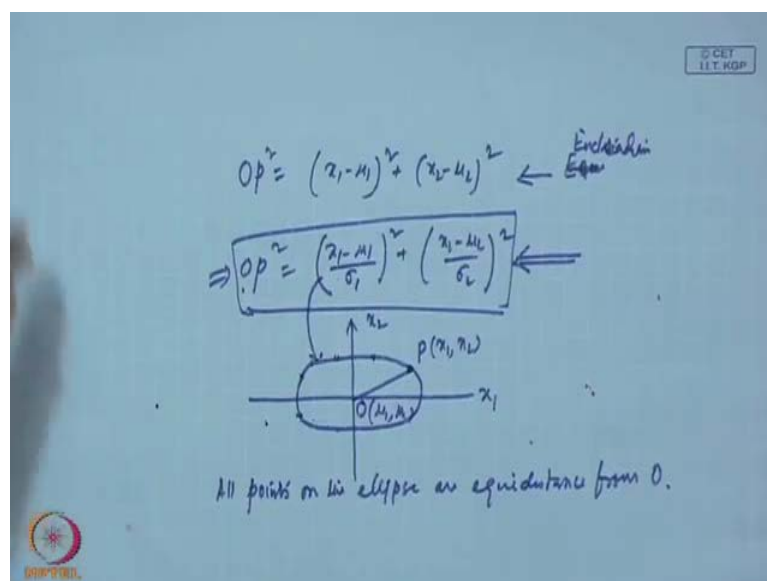 © CET
I.I.T. KGP
OP² = (x₁-μ₁)² + (x₂-μ₂)² ←
⇒ OP² = ((x₁-μ₁)/σ₁)² + ((x₁-μ₂)/σ₂)² ⇐
x₂
P(x₁, x₂)
x₁
O(μ₁, μ₂)
All points on the ellipse are equidistance from O.
NPTEL